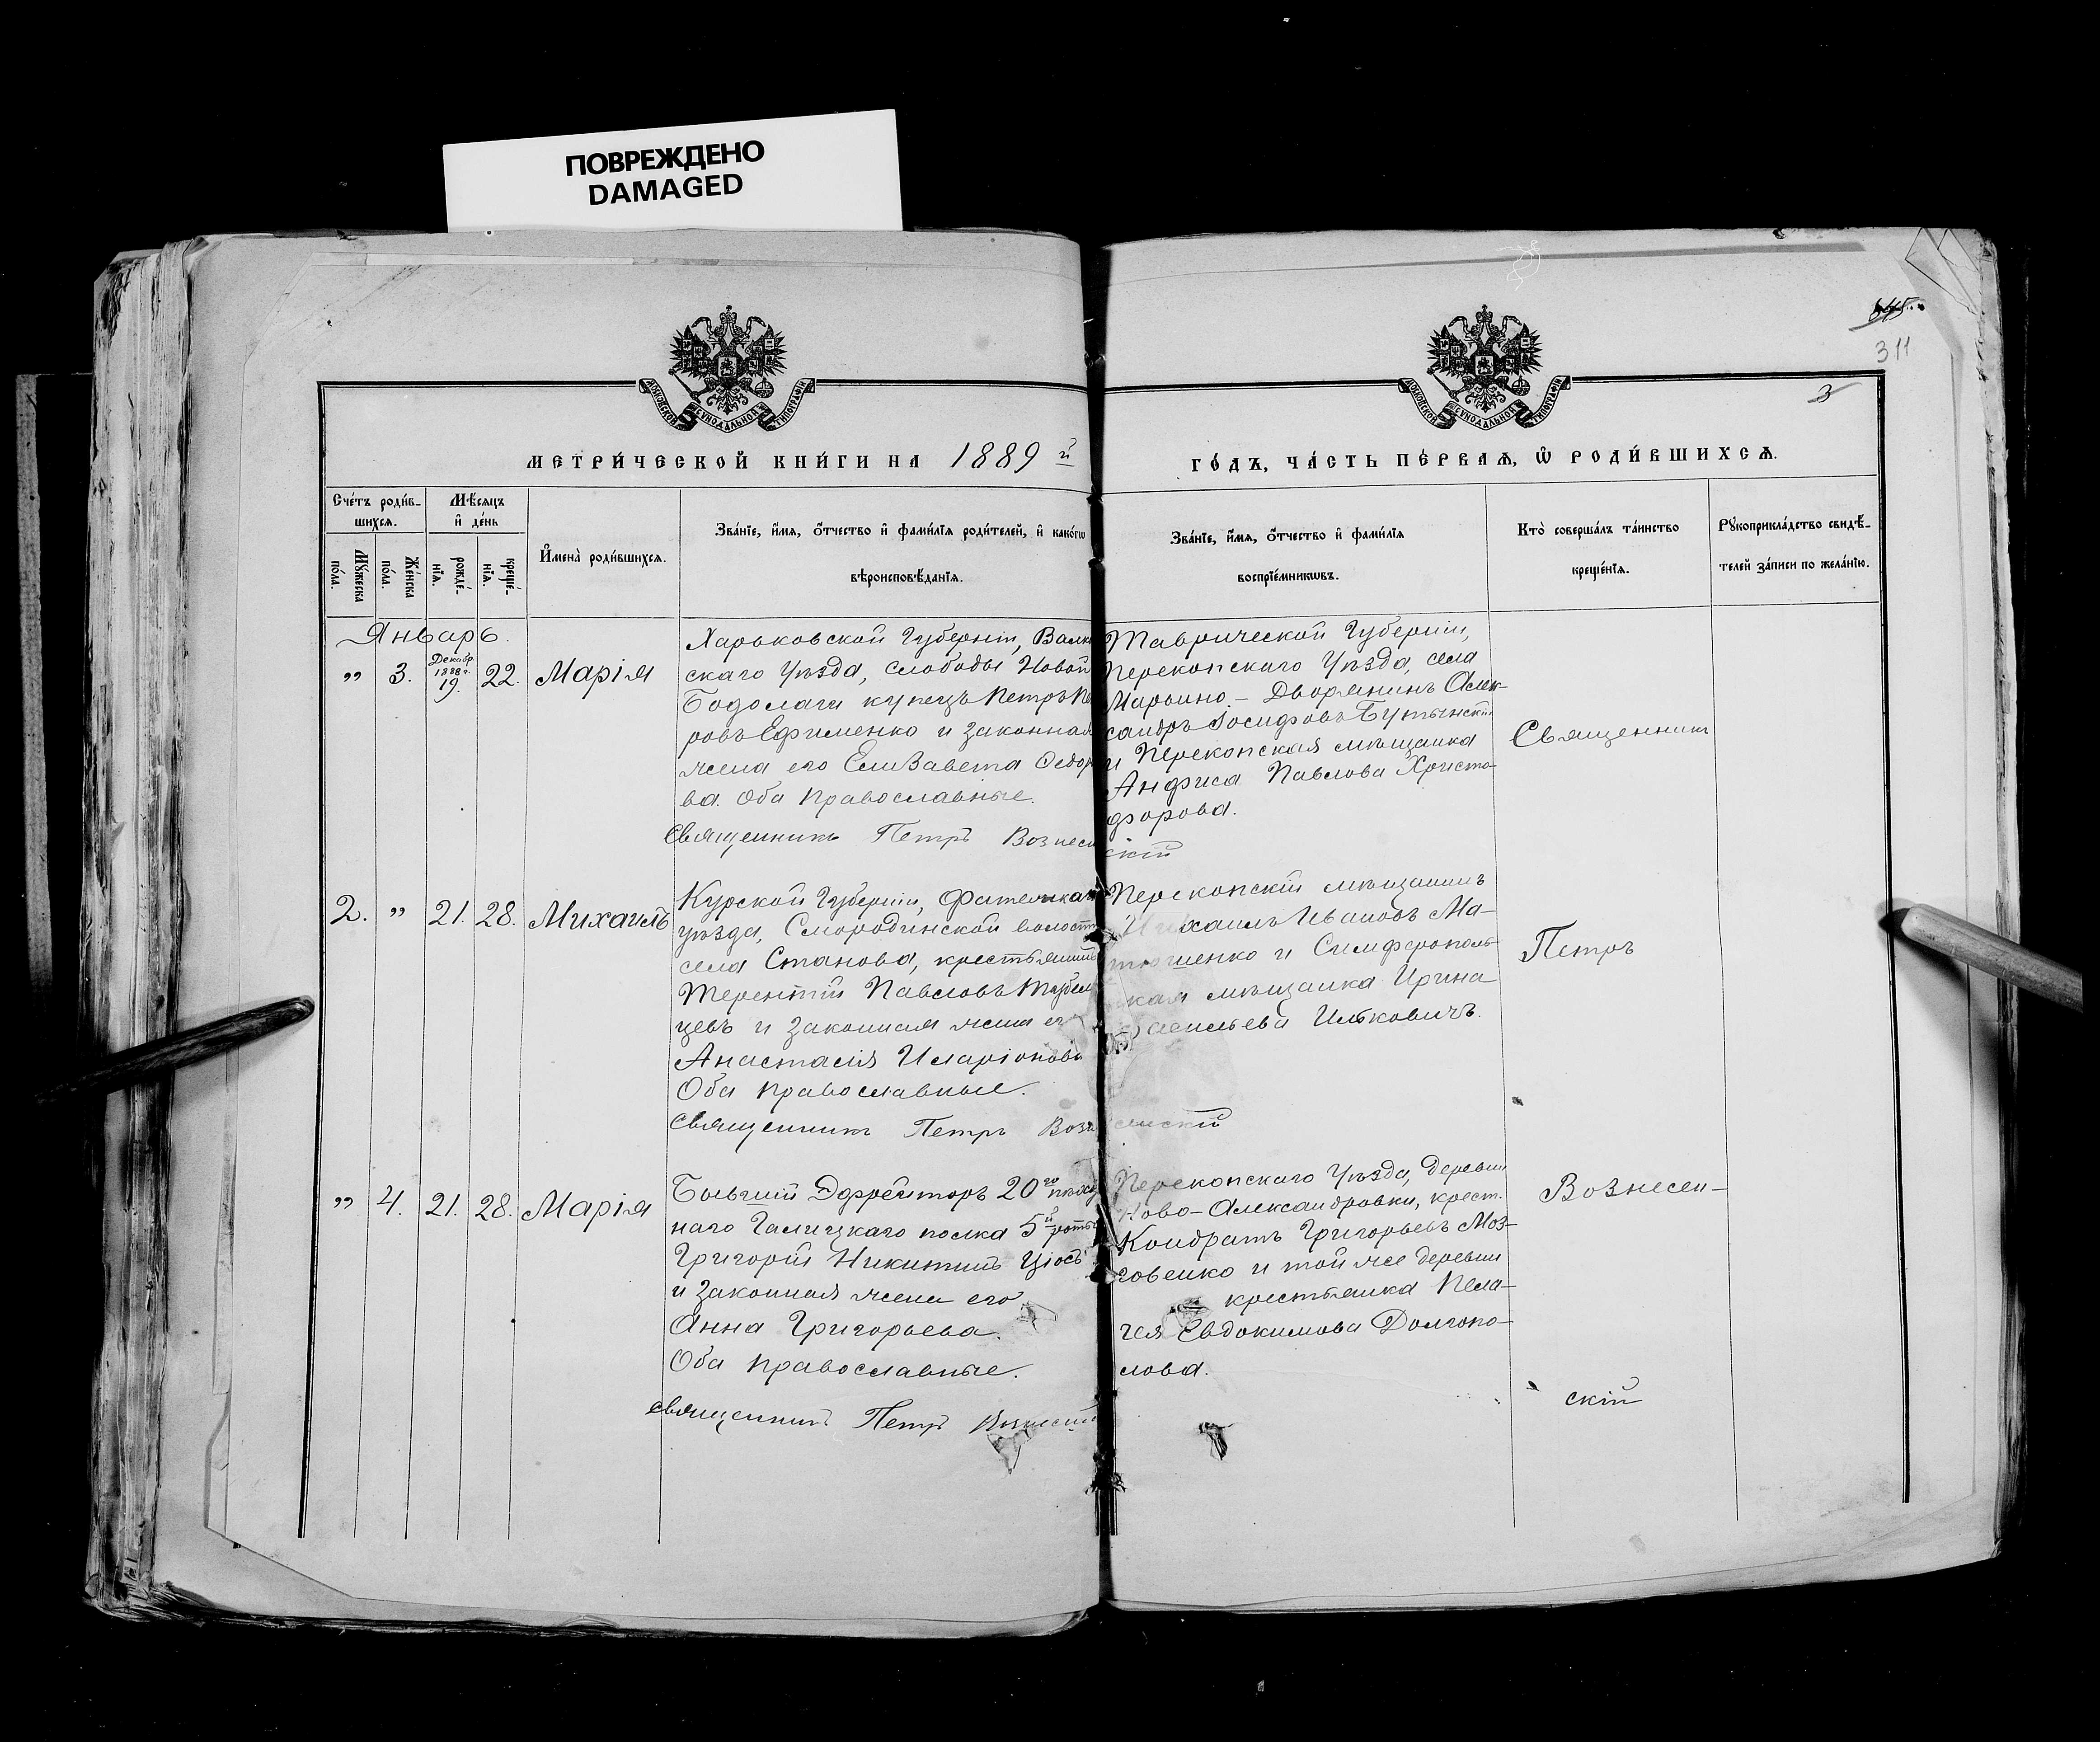 ПОВРЕЖДЕНО
DAMAGED
311
3
МОСКОВСКОЙ СѴНОДАЛЬНОЙ ТИПОГРАФІИ
МОСКОВСКОЙ СѴНОДАЛЬНОЙ ТИПОГРАФІИ
МЕТРИ́ЧЕСКОЙ КНИ́ГИ НА 1889 й
ГО́ДЪ, ЧА́СТЬ ПЕ́РВАѦ, Ѽ РОДИ́ВШИХСѦ.
Сче́тъ роди́в-
шихсѧ.
Мꙋ́жеска
по́ла.
Же́нска
по́ла.
Мѣ́сѧцъ
и҆ де́нь
рожде́-
нїѧ.
креще́-
нїѧ.
И҆мена̀ роди́вшихсѧ.
Зва́нїе, и҆́мѧ, о҆́тчество и҆ фами́лїѧ роди́телей, и҆ како́гѡ
вѣроисповѣ́данїѧ.
Зва́нїе, и҆́мѧ, о҆́тчество и҆ фами́лїѧ
воспрїе́мникѡвъ.
Кто̀ соверша́лъ та́инство
креще́нїѧ.
Рꙋкоприкла́дство свидѣ́-
телей за́писи по жела́нїю.
Январь.
„ 3. Декабр. 1888 г. 19. 22. Марія
Харьковской Губерніи, Валк
скаго Уѣзда, слободы Новой
Бодолаги купецъ Петръ Пе
ровъ Ефименко и законная
жена его Елизавета Ѳедор
ва. Оба православные.
Священникъ Петръ Вознесен
Таврической Губерніи,
Перекопскаго Уѣзда, села
Марьино – Дворянинъ Алек-
сандръ Іосифовъ Бутынскій
и Перекопская мѣщанка
Анфиса Павлова Христо-
форова.
скій
Священникъ
2. „ 21. 28. Михаилъ
Курской Губерніи, Фатежска
уѣзда, Смородинской волости
села Станова, крестьянинъ
Терентій Павловъ
цевъ и законная жена ег
Анастасія Иларіонова
Оба православные.
Священникъ Петръ Возн
Перекопскій мѣщанинъ
Михаилъ Ивановъ Ма-
тюшенко и Симферополь-
ская мѣщанка Ирина
Васильева Илькевичъ.
сенскій
Петръ
„ 4. 21. 28. Марія
Бывшій Эфрейторъ 20го пѣхот
наго Галицкаго полка 5й роты
Григорій Никитинъ Цюсь
и законная жена его
Анна Григорьева.
Оба православные.
Священникъ Петръ Вознесен
Перекопскаго Уѣзда, деревни
Ново-Александровки, крест.
Кондратъ Григорьевъ Моз-
говенко и той же деревни
крестьянка Пела-
гея Евдокимова Долгопо-
лова.
Вознесен-
скій